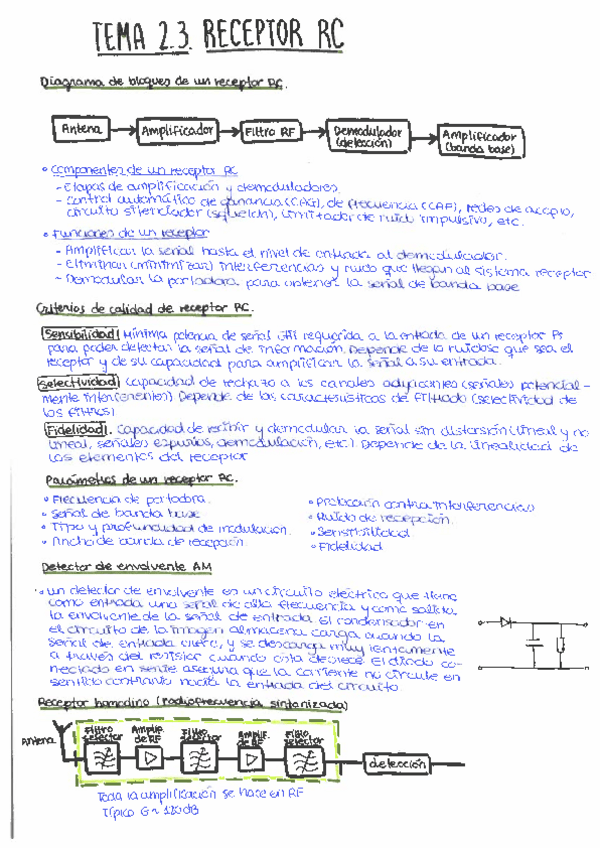 TEMA 2.3. RECEPTOR RC
Diagrama de bloques de un receptor RC.
Antena
Amplificador
Filtro RF
Demodulador
(detección)
Amplificador
(banda base)
• Componentes de un receptor RC
- Etapas de amplificación y demoduladores.
- Control automático de ganancia (CAG), de frecuencia (CAF), redes de acoplo,
circuito silenciador (squelch), limitador de ruido impulsivo, etc.
• Funciones de un receptor
- Amplificar la señal hasta el nivel de entrada al demodulador.
- Eliminar (minimizar) interferencias y ruido que llegan al sistema receptor
- Demodular la portadora para obtener la señal de banda base
Criterios de calidad de receptor RC.
Sensibilidad Mínima potencia de señal útil requerida a la entrada de un receptor Ps
para poder detectar la señal de información. Depende de lo ruidoso que sea el
receptor y de su capacidad para amplificar la señal a su entrada.
Selectividad Capacidad de rechazo a los canales adyacentes (señales potencial-
mente interferentes) Depende de las características de filtrado (selectividad de
los filtros)
Fidelidad. Capacidad de recibir y demodular la señal sin distorsión (lineal y no
lineal, señales espurias, demodulación, etc.) Depende de la linealidad de
los elementos del receptor
Parámetros de un receptor RC.
• Frecuencia de portadora.
• Señal de banda base
• Tipo y profundidad de modulación.
• Ancho de banda de recepción.
• Protección contra interferencias
• Ruido de recepción.
• Sensibilidad
• Fidelidad
Detector de envolvente AM
• Un detector de envolvente es un circuito eléctrico que tiene
como entrada una señal de alta frecuencia y como salida
la envolvente de la señal de entrada. El condensador en
el circuito de la imagen almacena carga cuando la
señal de entrada crece, y se descarga muy lentamente
a través del resistor cuando esta decrece. El diodo co-
nectado en serie asegura que la corriente no circule en
sentido contrario hacia la entrada del circuito.
Receptor homodino (radiofrecuencia sintonizada)
Antena
Filtro
selector
Amplif.
de RF
Filtro
selector
Amplif.
de RF
Filtro
selector
detección
Toda la amplificación se hace en RF
Típico G ~ 120 dB